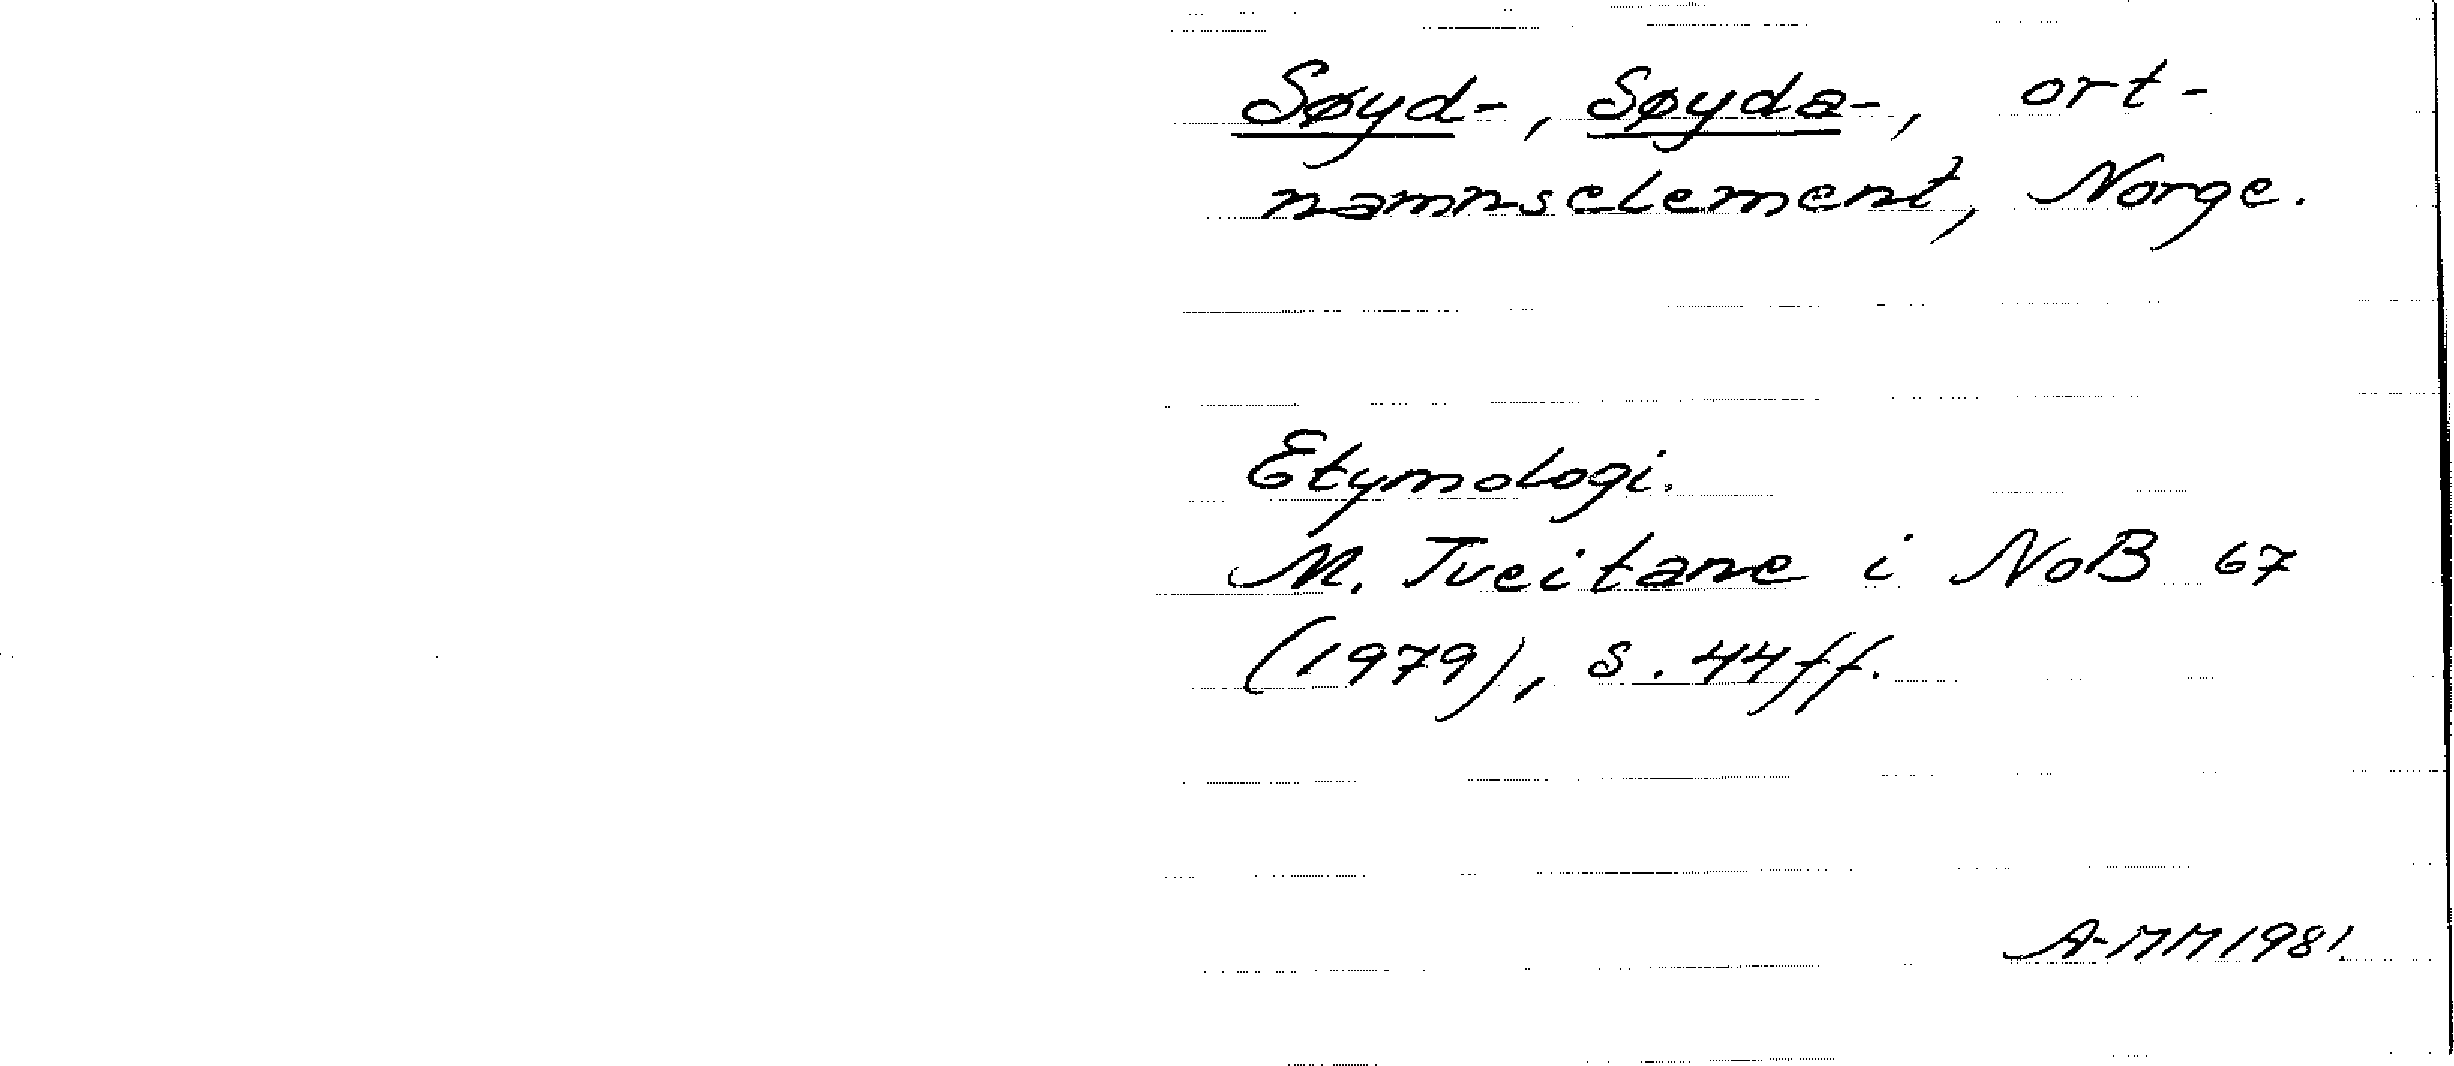 Søyd-, Søyda-, ort-
namnselement, Norge.
Etymologi.
M. Tveitane i NoB 67
(1979), s. 44ff.
A-MM 1981.